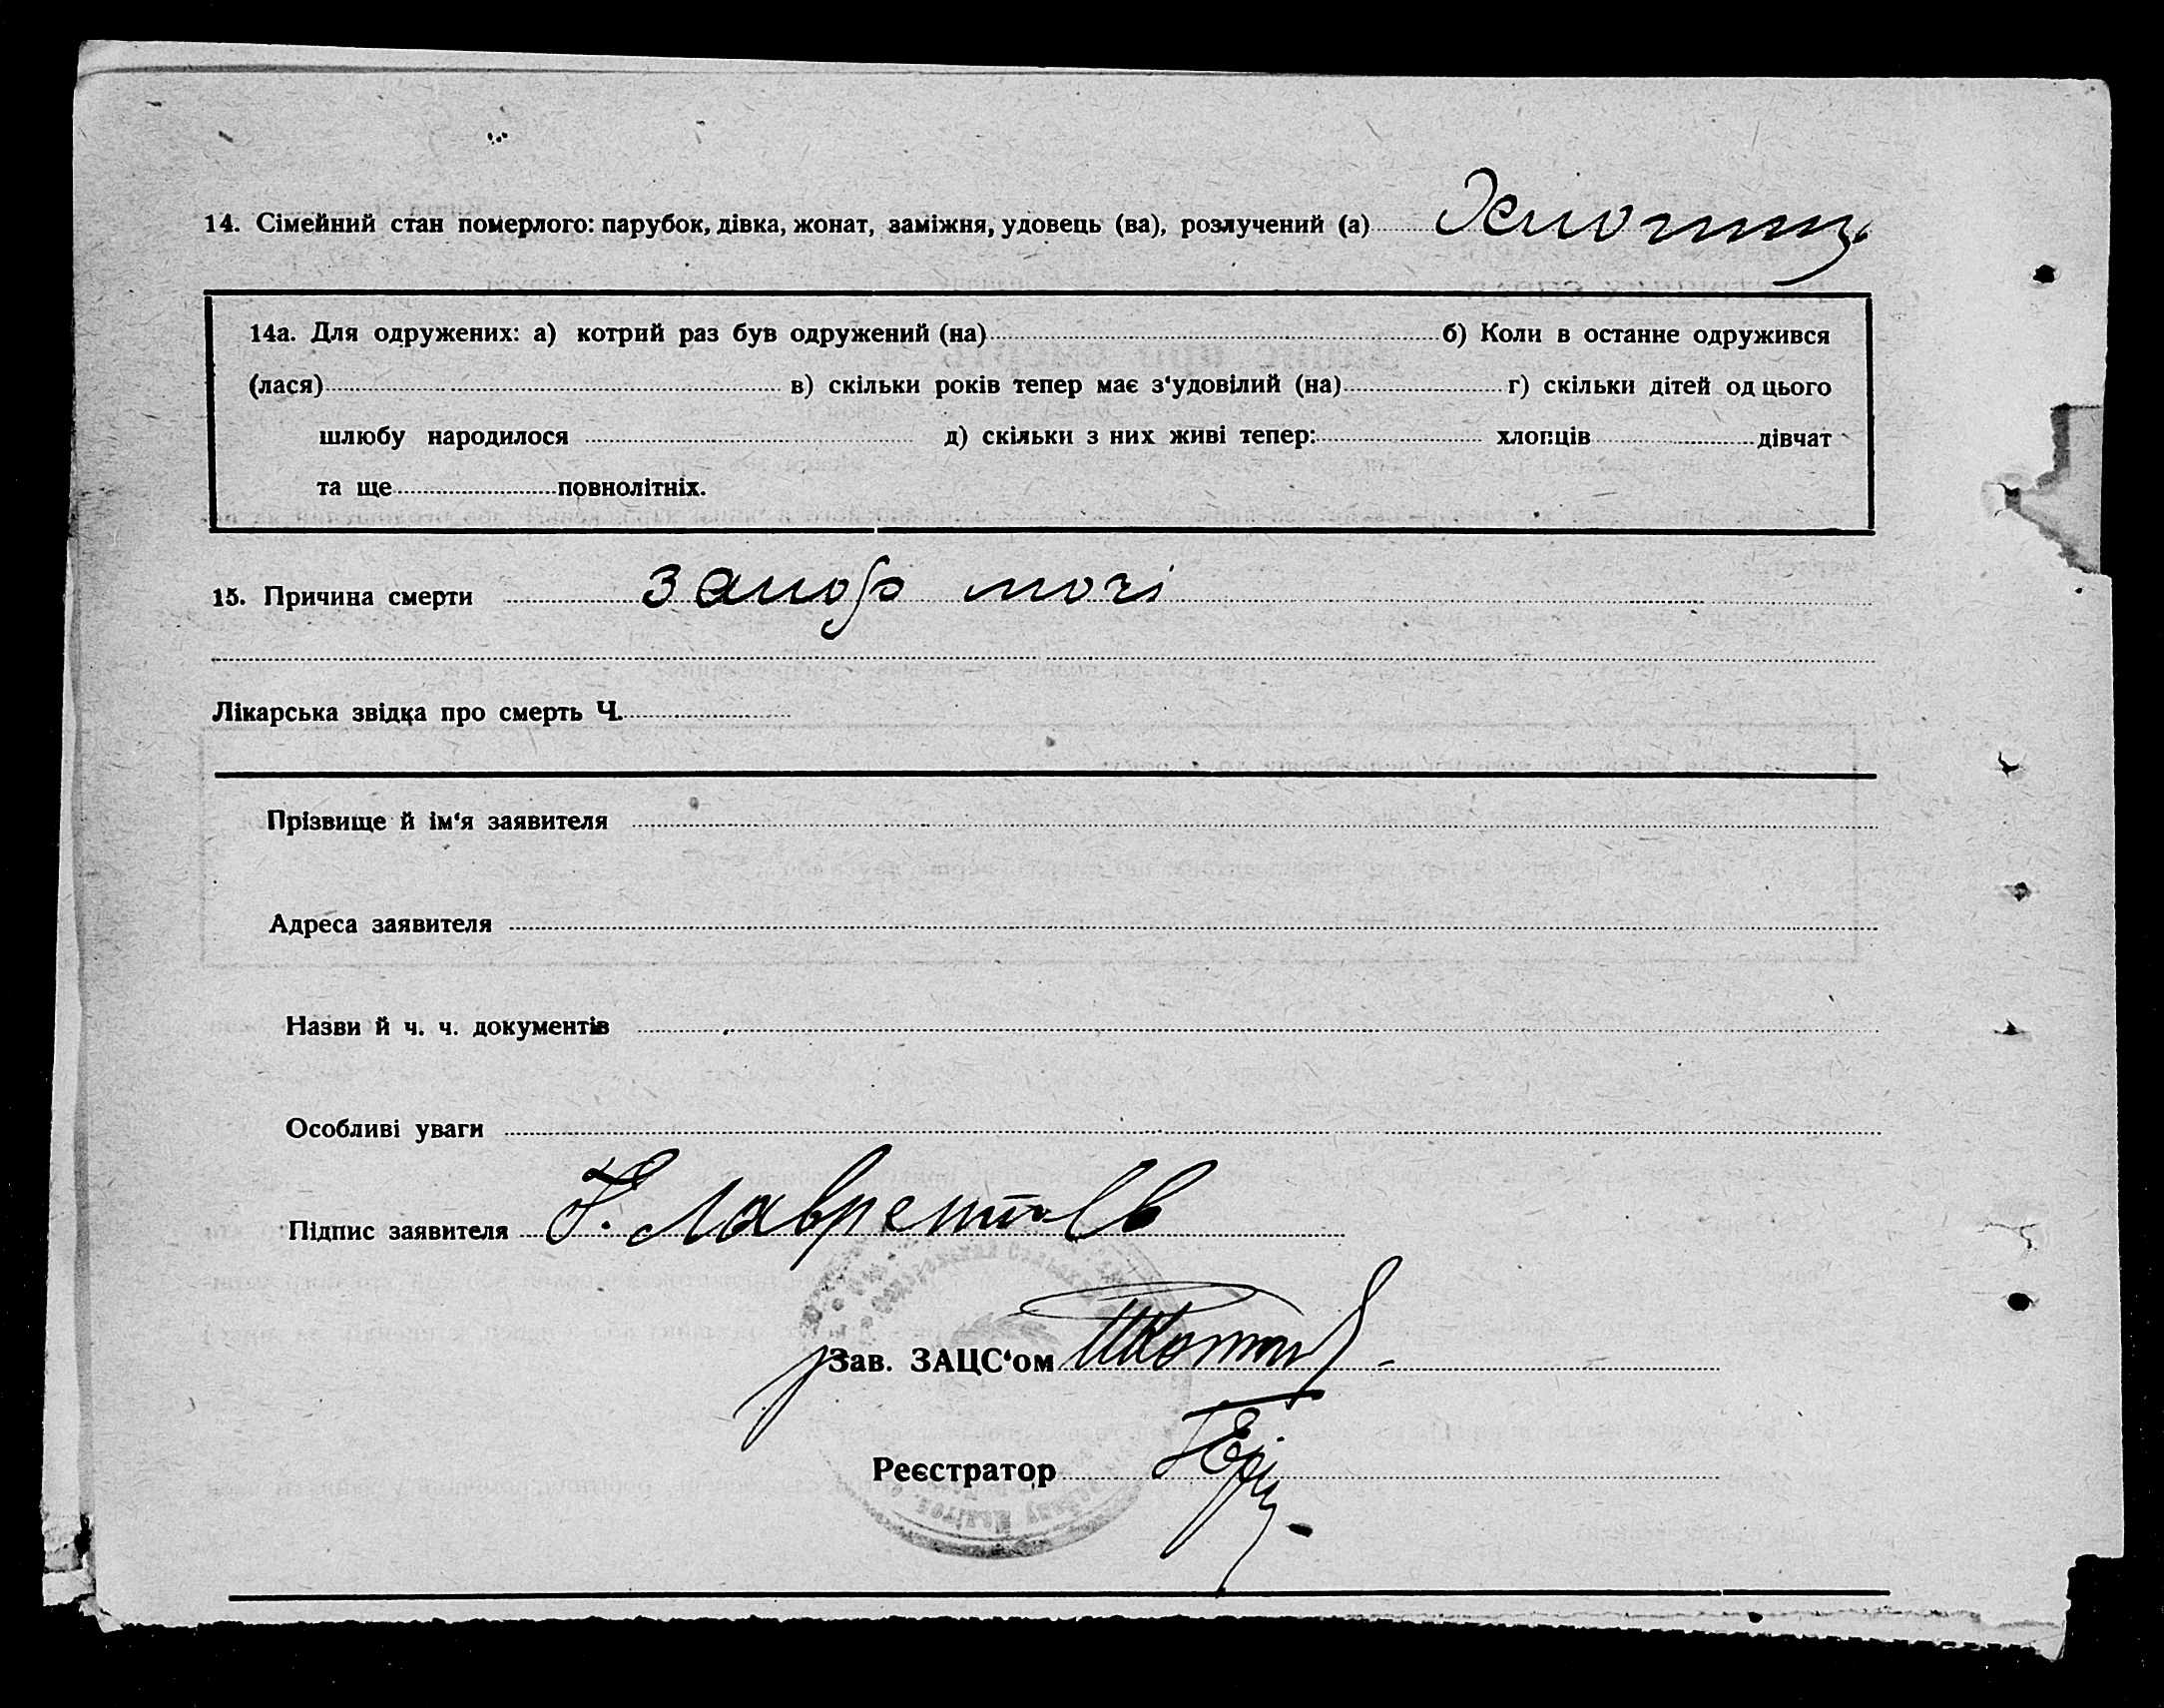 14. Сімейний стан померлого: парубок, дівка, жонат, заміжня, удовець (ва), розлучений (а)
14а. Для одружених: а) котрий раз був одружений (на) б) Коли в останне одружився
(лася) в) скільки років тепер має з‘удовілий (на) г) скільки дітей од цього
шлюбу народилося д) скільки з них живі тепер: хлопців дівчат
та ще повнолітніх.
15. Причина смерти запор мочі
Лікарська звідка про смерть Ч.
Прізвище й ім‘я заявителя
Адреса заявителя
Назви й ч. ч. документів
Особливі уваги
Підпис заявителя
Зав. ЗАЦС‘ом
Реєстратор